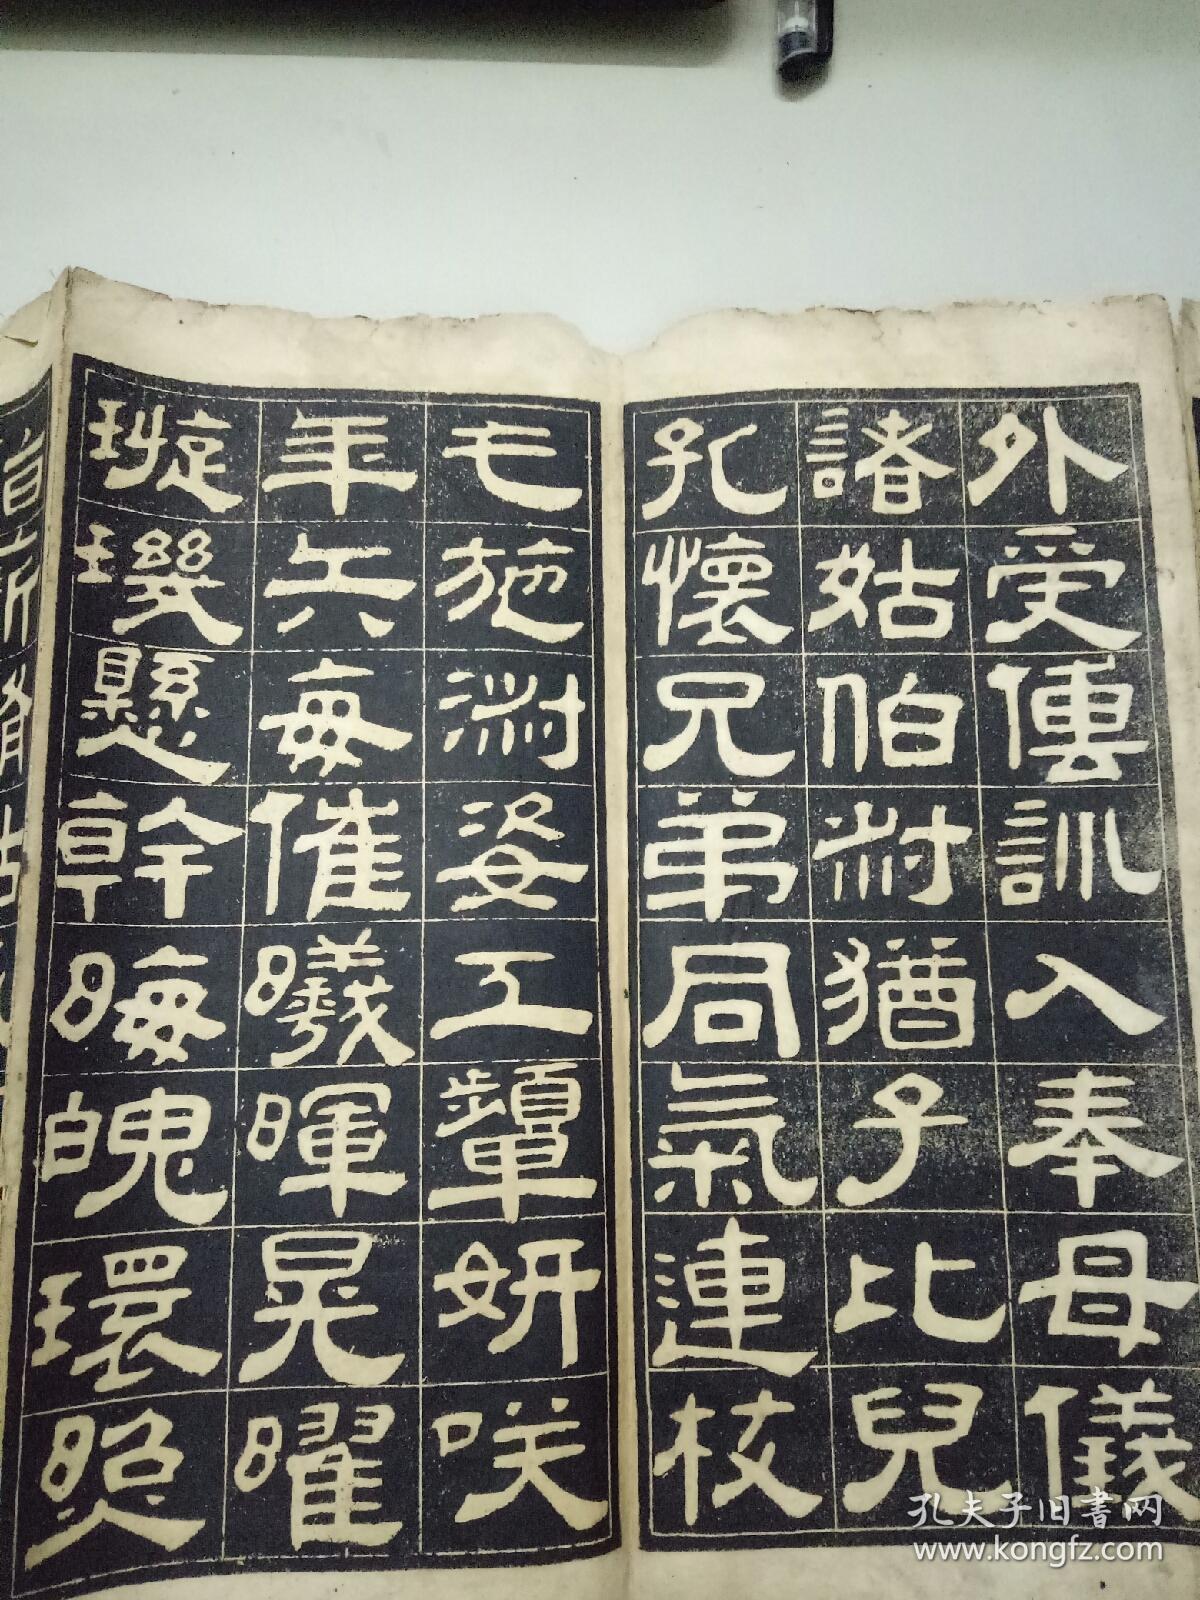 外受傅訓入奉母儀
諸姑伯叔猶子比兒
孔懷兄弟同氣連枝
毛施淑姿工顰妍咲
年矢每催曦暉晃曜
璇璣懸斡晦魄環照
孔夫子旧書网
www.kongfz.com